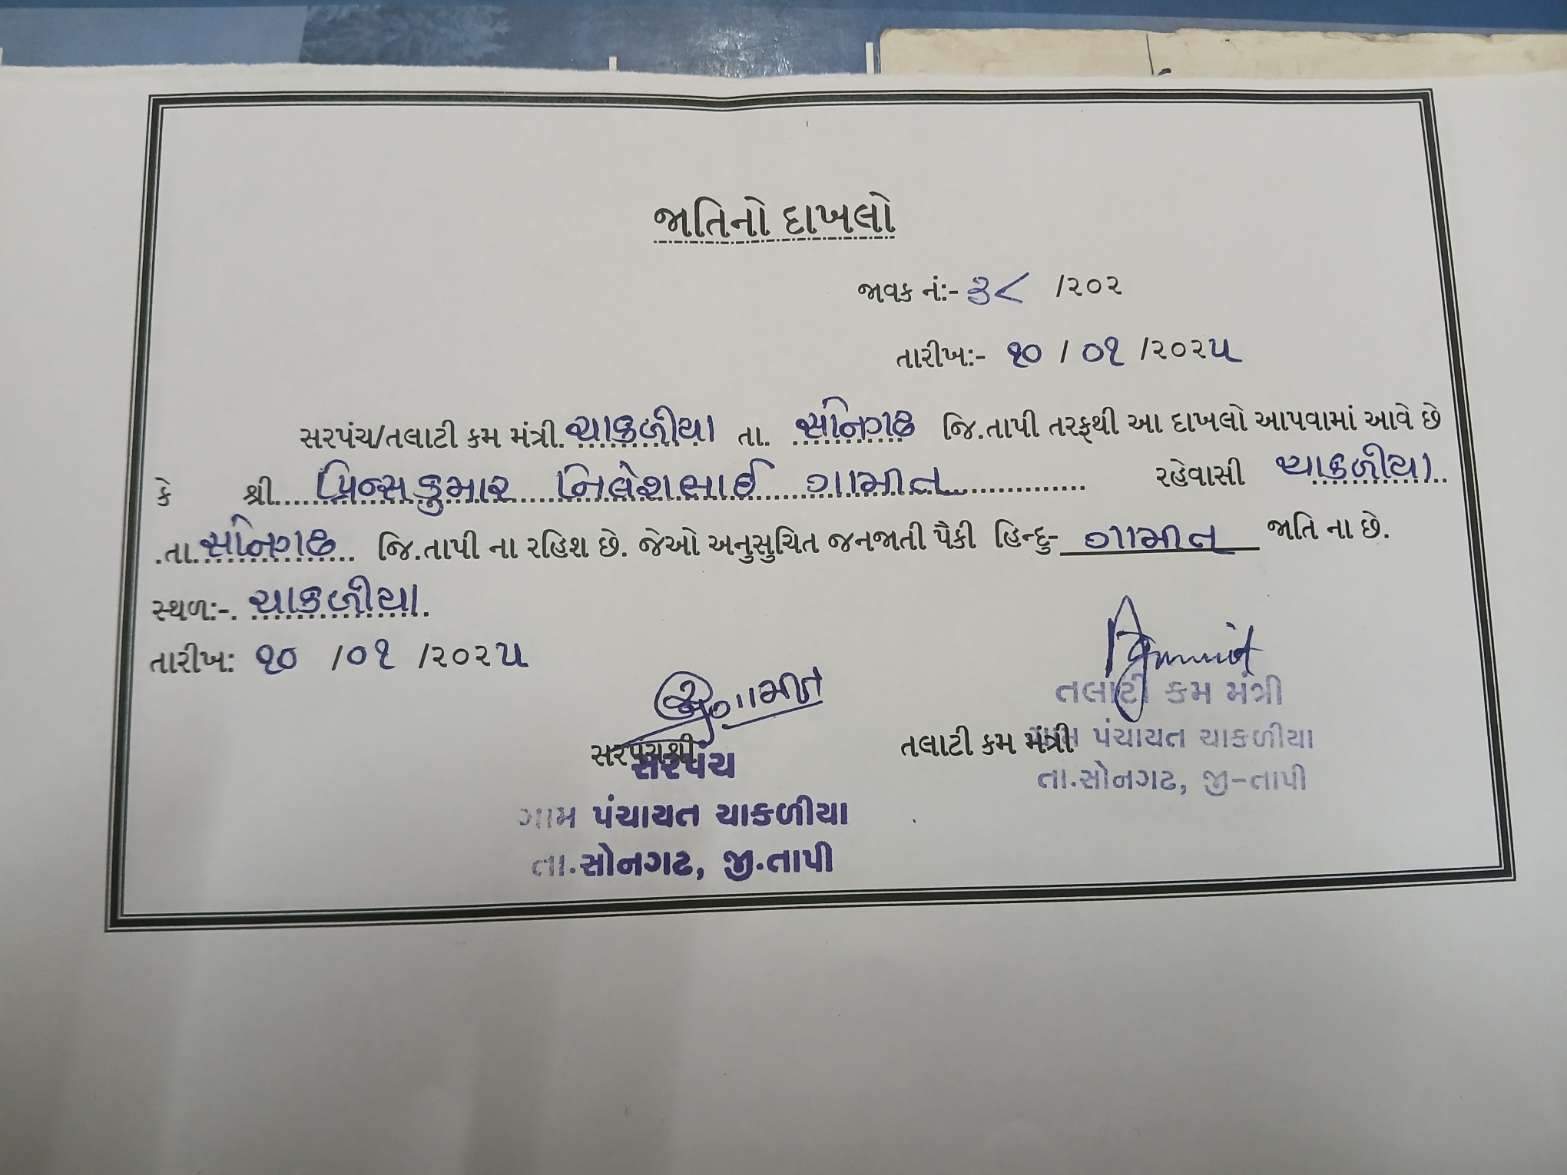 જાતિનો દાખલો
જાવક નં:- ૩૮ /૨૦૨
તારીખ:- ૧૦ / ૦૧ /૨૦૨૫
સરપંચ/તલાટી કમ મંત્રી. ચાકળીયા તા. સોનગઢ જિ.તાપી તરફથી આ દાખલો આપવામાં આવે છે
કે શ્રી.... પ્રિન્સકુમાર નિલેશભાઈ ગામીત ............... રહેવાસી ચાકળીયા..
.તા. સોનગઢ.. જિ.તાપી ના રહિશ છે. જેઓ અનુસુચિત જનજાતી પૈકી હિન્દુ- ગામીત જાતિ ના છે.
સ્થળ:-. ચાકળીયા.
તારીખ: ૧૦ /૦૧ /૨૦૨૫
ગામીત
તલાટી કમ મંત્રી
સરપંચશ્રી
તલાટી કમ મંત્રી
પંચાયત ચાકળીયા
સરપંચ
તા.સોનગઢ, જી-તાપી
ગ્રામ પંચાયત ચાકળીયા
તા.સોનગઢ, જી.તાપી